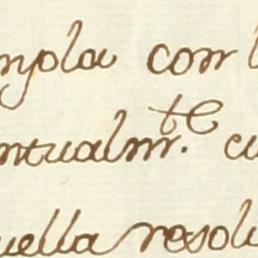 mpla con l
ntualm.te cu
uella resolu